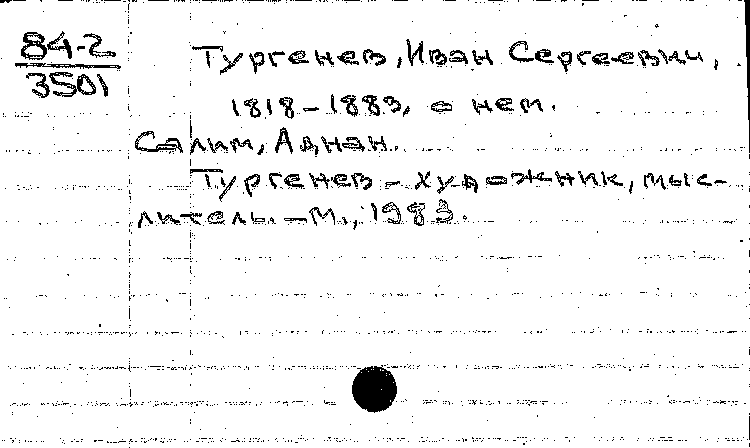 84-2
3501
Тургенев, Иван Сергеевич,
1818-1883, о нем.
Салим, Аднан.
Тургенев - художник, мыс-
литель. - М., 1983.